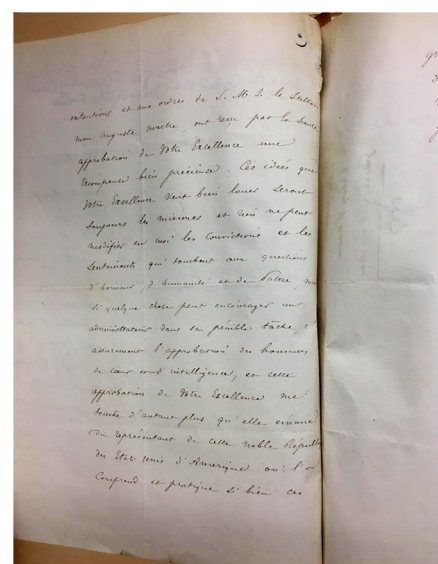 intentions et aux ordres de S. M. I. le Sultan
mon auguste maître, ont reçu par la haute
approbation de Votre Excellence une
récompense bien précieuse. Ces idées que
Votre Excellence veut bien louer seront
toujours les miennes et rien ne peut
modifier en moi les convictions et les
sentiments qui touchent aux questions
d'honneur, d'humanité et de
si quelque chose peut encourager un
administrateur dans sa pénible tâche, c'
assurément l'approbation des hommes
de cœur et d'intelligence, et cette
approbation de Votre Excellence me
touche d'autant plus qu'elle émane
du représentant de cette noble République
des États unis d'Amérique où l'on
comprend et pratique si bien ces